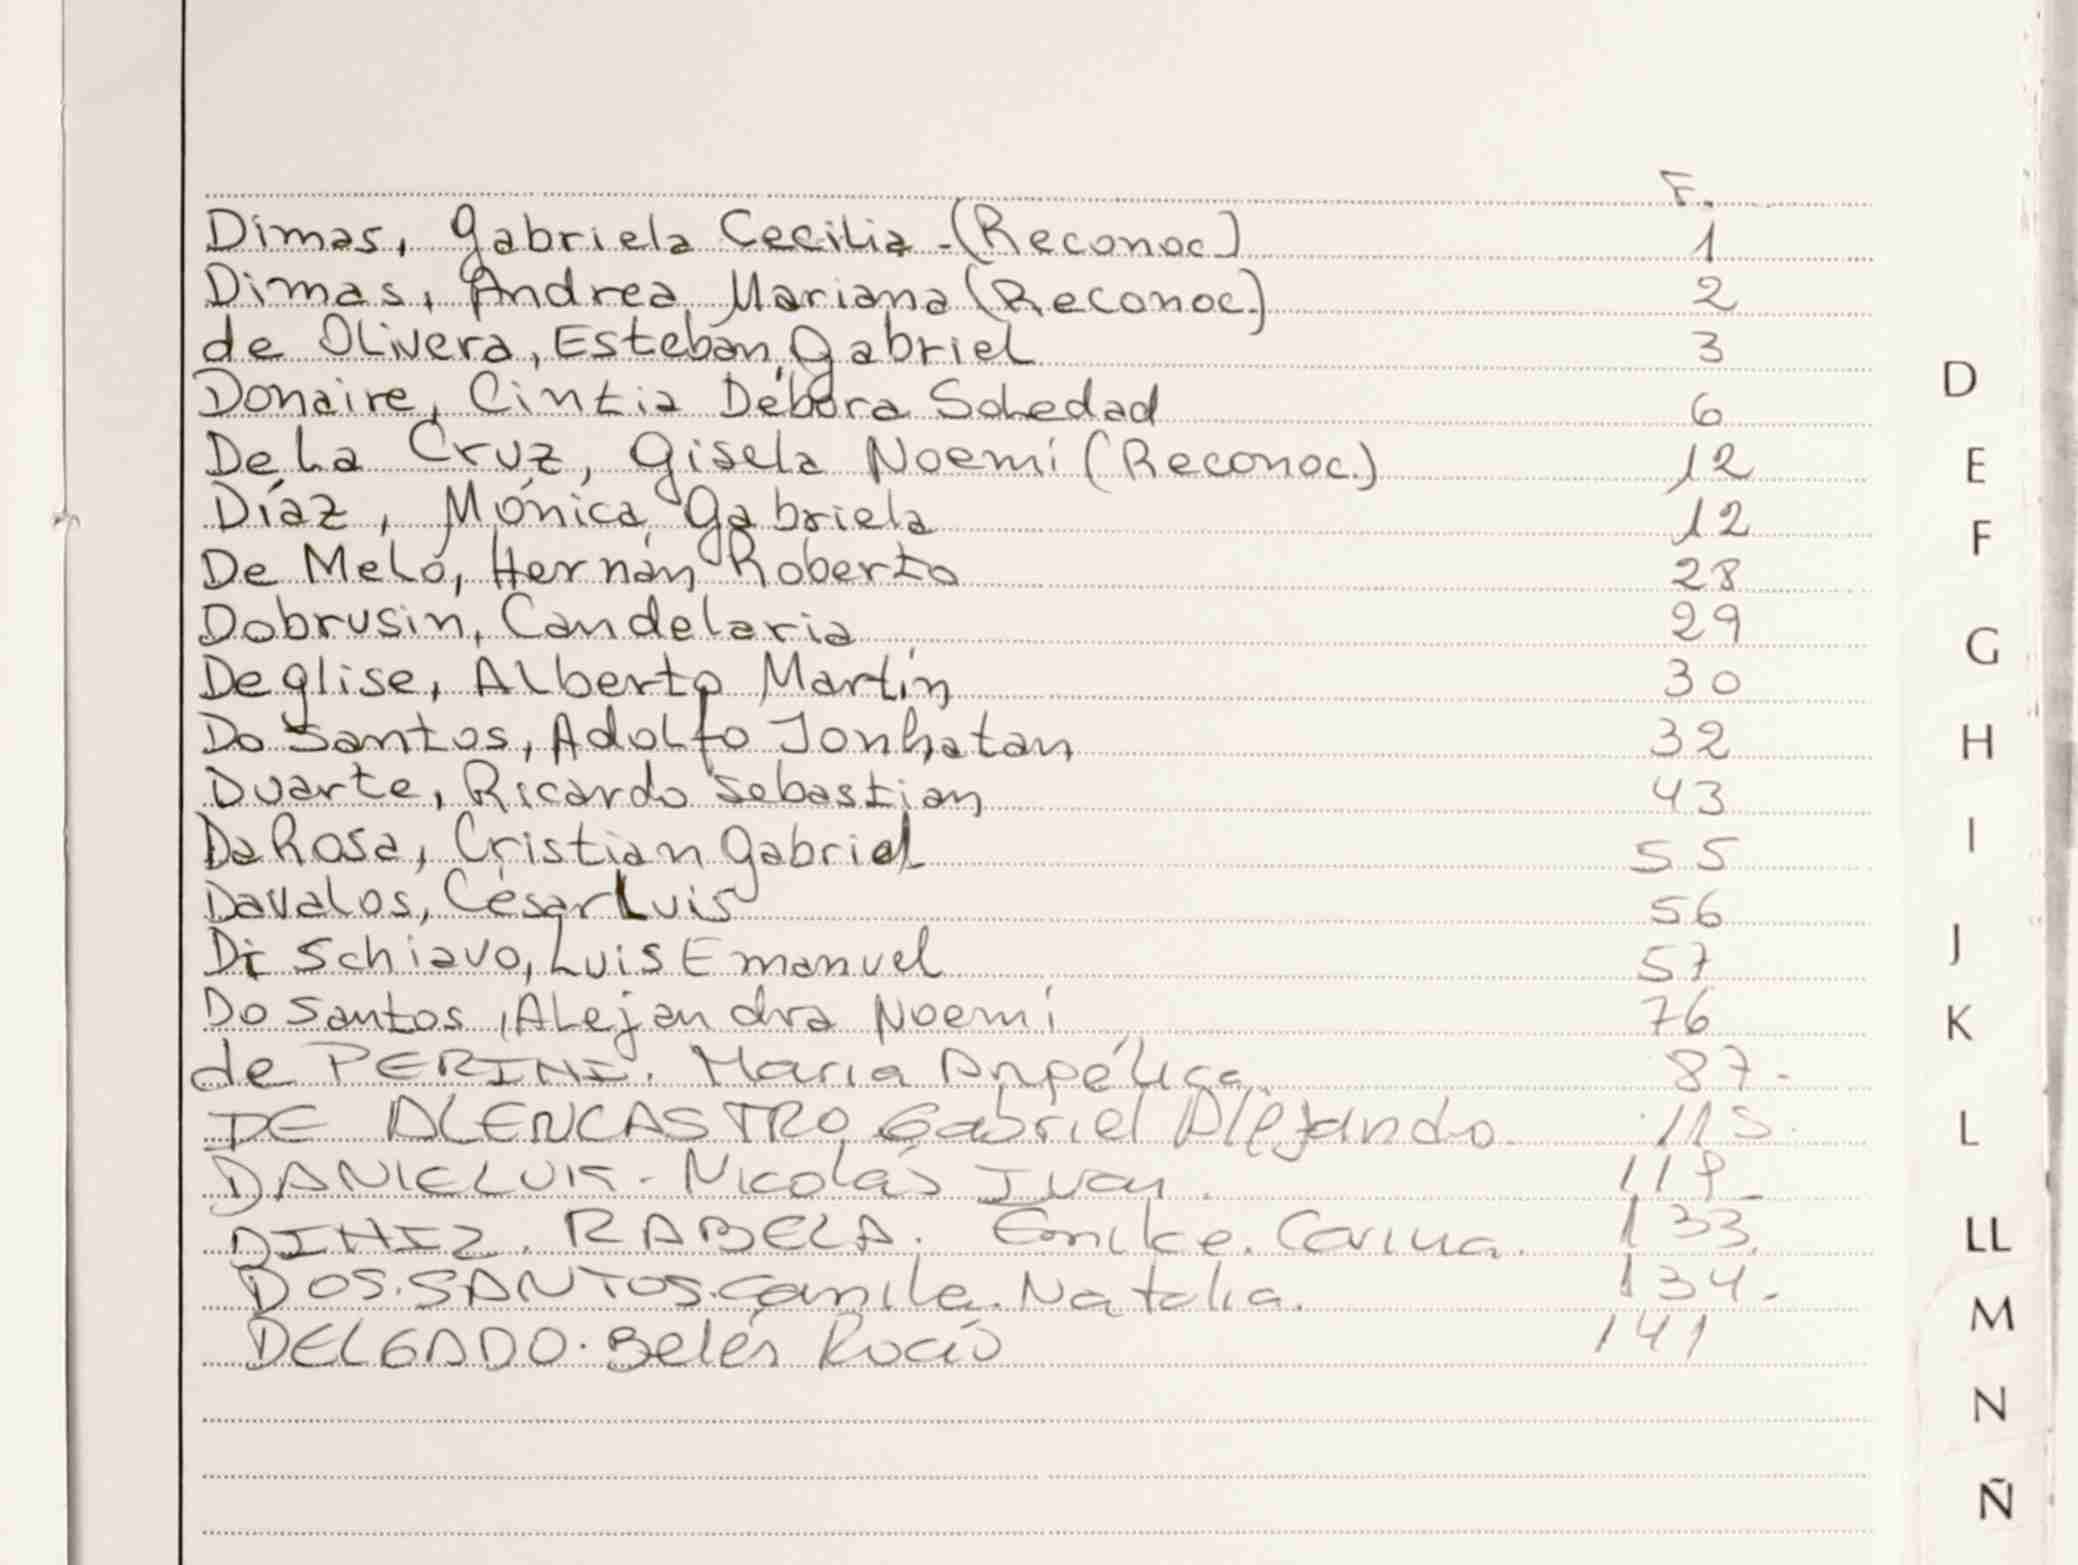 F.
Dimas, Gabriela Cecilia - (Reconoc) 1
Dimas, Andrea Mariana (Reconoc.) 2
de Olivera, Esteban Gabriel 3
Donaire, Cintia Débora Soledad 6
De La Cruz, Gisela Noemí (Reconoc.) 12
Díaz, Mónica Gabriela 12
De Melo, Hernán Roberto 28
Dobrusin, Candelaria 29
Deglise, Alberto Martín 30
Do Santos, Adolfo Jonhatan 32
Duarte, Ricardo Sebastian 43
Da Rosa, Cristian Gabriel 55
Davalos, César Luis 56
Di Schiavo, Luis Emanuel 57
Do Santos, Alejandra Noemí 76
de PERINI. Maria Angélica. 87.-
DE ALENCASTRO Gabriel Alejando. 115.
DANIELUK - Nicolás Ivan.
DINIZ. RABELA. Carina. 133.
DOS.SANTOS.Camila.Natalia. 134.-
DELGADO. Belén Rocío 141
D
E
F
G
H
I
J
K
L
LL
M
N
Ñ